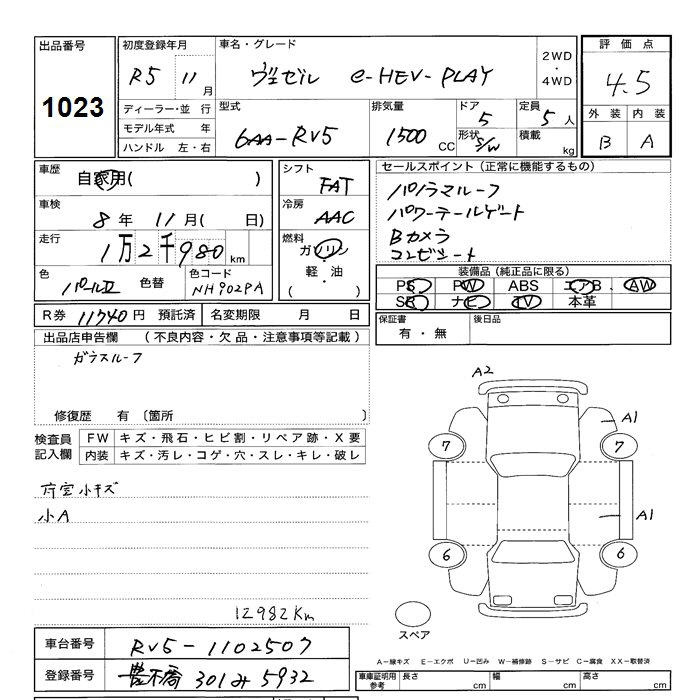 出品番号
1023
初度登録年月
R5 11 月
ディーラー・並 行
モデル年式 年
ハンドル 左・右
車名・グレード
ヴェゼル e-HEV-PLAY
2WD
・
4WD
型式
6AA-RV5
排気量
1500 CC
ドア
5
形状
S/W
定員
5 人
積載
kg
評価点
4.5
外装 内装
B A
車歴
自家用( )
車検
8 年 11 月( 日)
走行
1万2千980 km
色
パールII
色替
色コード
NH902PA
シフト
FAT
冷房
AAC
燃料
ガソリン
軽・油
( )
セールスポイント(正常に機能するもの)
パノラマルーフ
パワーテールゲート
Bカメラ
コンビシート
装備品(純正品に限る)
PS PW ABS エアB AW
SR ナビ TV 本革
R券 11740 円 預託済 名変期限 月 日
保証書
有・無
後日品
出品店申告欄 (不良内容・欠品・注意事項等記載)
ガラスルーフ
修復歴 有〔箇所 〕
検査員
記入欄
FW キズ・飛石・ヒビ割・リペア跡・X要
内装 キズ・汚レ・コゲ・穴・スレ・キレ・破レ
小キズ
小A
12982Km
A2
A1
7 7
A1
6 6
スペア
A-線キズ E-エクボ U-凹み W-補修跡 S-サビ C-腐食 XX-取替済
車台番号 RV5-1102507
登録番号 豊橋 301み5932
車庫証明用
参考
長さ cm 幅 cm 高さ cm